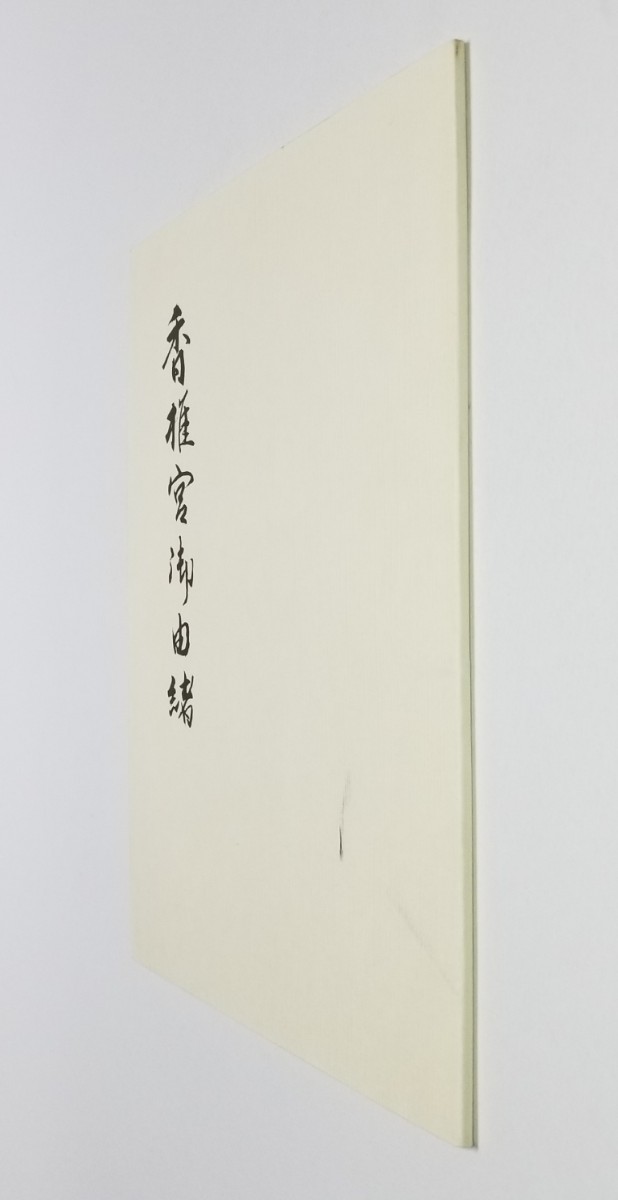 香椎宮御由緒